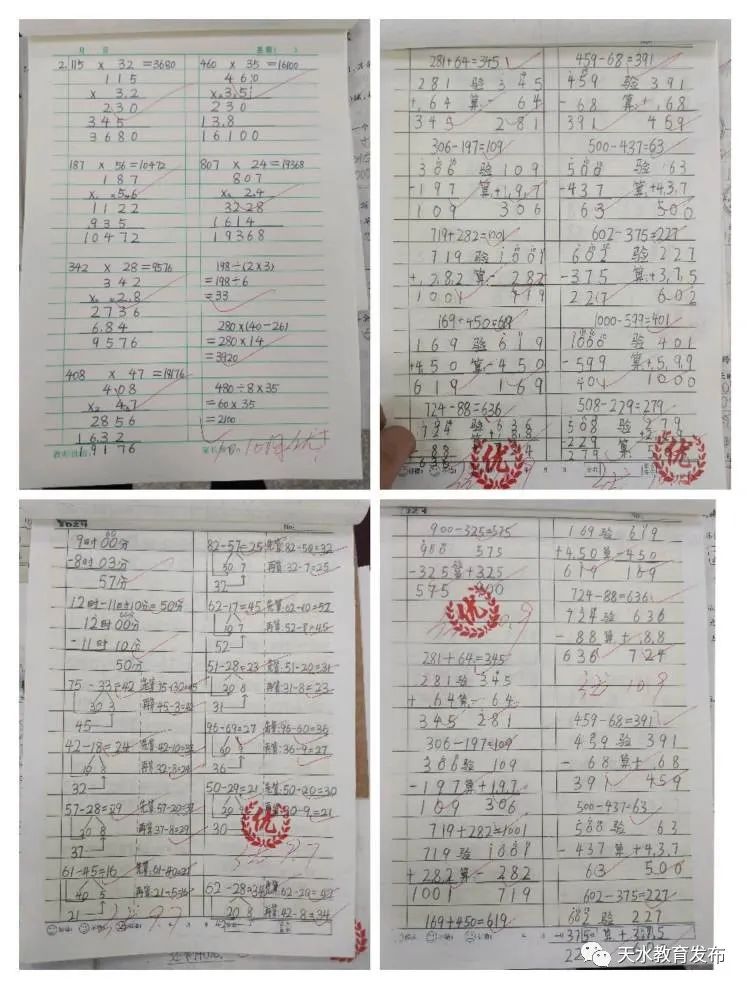 月 日 星期( )
2. 115 × 32 =3680
115
× 32
230
345
3680
187 × 56 =10472
187
× 56
1122
935
10472
342 × 28 =9576
342
× 28
2736
684
9576
408 × 47 =19176
408
× 47
2856
1632
19176
460 × 35 =16100
460
× 35
230
138
16100
807 × 24 =19368
807
× 24
3228
1614
19368
198÷(2×3)
=198÷6
=33
280×(40-26)
=280×14
=3920
480÷8×35
=60×35
=2100
281+64=345
281 验 345
+ 64 算 - 64
345 281
306-197=109
306 验 109
-197 算 +197
109 306
719+282=1001
719 验 1001
+282 算 -282
1001 719
169+450=619
169 验 619
+450 算 -450
619 169
724-88=636
724 验 636
459-68=391
459 验 391
- 68 算 + 68
391 459
500-437=63
500 验 63
-437 算 +437
63 500
602-375=227
602 验 227
-375 算 +375
227 602
1000-599=401
1000 验 401
-599 算 +599
401 1000
508-229=279
508 验 279
-229 算
279
优
优
9时00分
-8时03分
57分
12时-11时10分=50分
12时00分
-11时10分
50分
75-33=42
30 3
45
42-18=24 先算:42-10=32
10 8 再算:32-8=24
32
57-28=29 先算:57-20=37
20 8 再算:37-8=29
37
61-45=16 先算:61-40=21
40 5 再算:21-5=16
21
82-57=25 先算:82-50=32
50 7 再算:32-7=25
32
62-17=45 先算:62-10=52
10 7 再算:52-8=45
52
51-28=23 先算:51-20=31
20 8 再算:31-8=23
31
96-69=27 先算:96-60=36
60 9 再算:36-9=27
36
50-29=21 先算:50-20=30
20 9 再算:30-9=21
30
62-28=34
20 8 再算:42-8=34
优
No:
900-325=575
900 575
-325 验算 +325
575 900
优
281+64=345
281 验 345
+ 64 算 - 64
345 281
306-197=109
306 验 109
-197 算 +197
109 306
719+282=1001
719 验 1001
+282 算 - 282
1001 719
169+450=619
No:
169 验 619
+450 算 -450
619 169
724-88=636
724 验 636
- 88 算 + 88
636 724
459-68=391
459 验 391
- 68 算 + 68
391 459
500-437=63
500 验 63
-437 算 +437
63 500
602-375=227
602 验 227
-375 算
天水教育发布